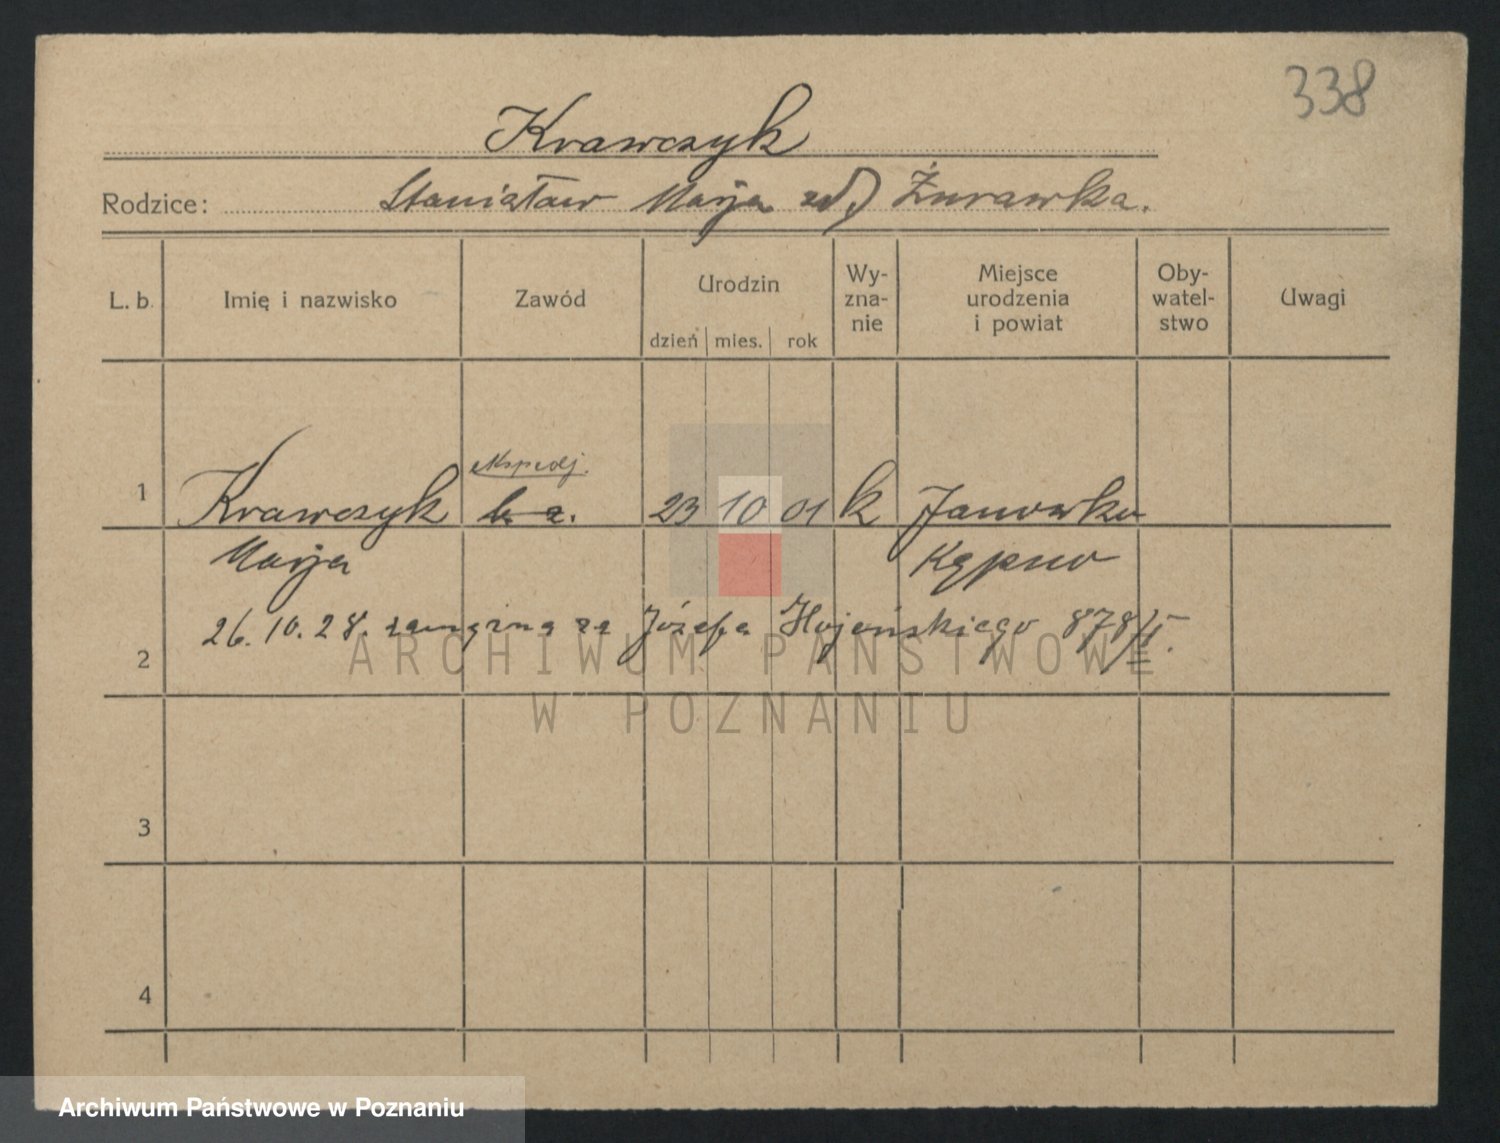 338
Krawczyk
Rodzice: Stanisław Marja zd. Żurawka.
L. b. Imię i nazwisko Zawód Urodzin Wy- Miejsce Oby- Uwagi
zna- urodzenia watel-
nie i powiat stwo
dzień mies. rok
ekspedj.
1 Krawczyk b. z. 23 10 01 k Janówka
Marja Kępno
26. 10. 28. zamężna za Józefa 878/II.
2
ARCHIWUM PAŃSTWOWE
W POZNANIU
3
4
Archiwum Państwowe w Poznaniu